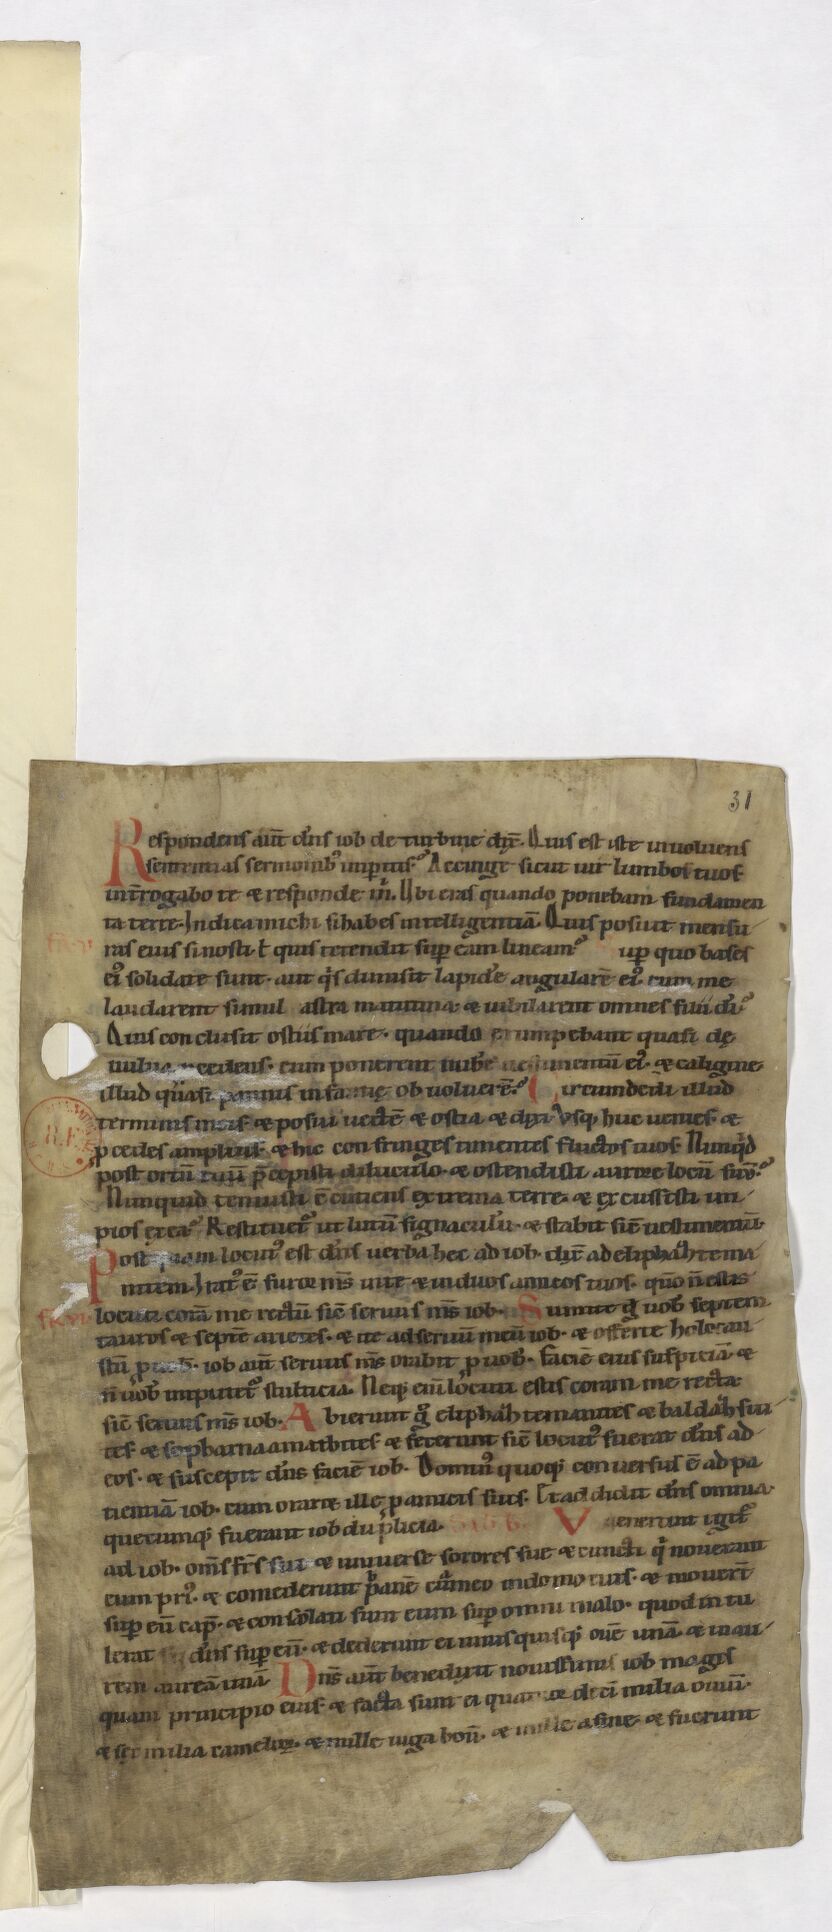 31
Respondens aut̄ dn̄s iob de turbine dix̄. Quis est iste inuoluens
sententias sermonibꝰ inperitis. Accinge sicut uir lumbos tuos
int̄rogabo te & responde m̄. Ubi eras quando ponebam fundamen
ta terre. Indica michi si habes intelligentiā. Quis posuit mensu-
ras eius si nosti ł quis tetendit sup̄ eam lineam. up̄ quo bases
eiꝰ solidate sunt. aut q̄s dimisit lapidē angularē eiꝰ cum me
laudarent simul astra matutina. & iubilarent omnes filii dī.
Quis conclusit ostiis mare. quando erumpebant quasi de
uulua cedens. cum ponerem nubē uestimentū eiꝰ. & caligine
illud quasi pannis infantię obuoluerē. Circumdedi illud
terminis meis. & posui uectē & ostia & dixi Usq; huc uenies. &
p̄cedes amplius. & hic confringes tumentes fluctos tuos. Nunqd
post ortū tuū p̄cepisti diluculo. & ostendisti aurore locū suū.
Nunquid tenuisti cutiens extrema terre. & excussisti im-
pios ex ea. Restituetꝰ ut lutū signaculū. & stabit sic̄ uestimentū.
Postquam locutꝰ est dn̄s uerba hec ad iob. dix̄ ad eliphath tema-
nitem. Iratꝰ ē furor ms̄ in te & in duos amicos tuos. qm̄ n̄ estis
locuti corā me rectū sic̄ seruus ms̄ iob. Sumite g̊ uob̄ septem
tauros & septē arietes. & ite ad seruū meū iob. & offerte holocau-
stū p uob̄. iob aut̄ seruus ms̄ orabit p uob̄. faciē eius suspiciā &
n̄ uob̄ inputetꝰ stulticia. Neq; enī locuti estis coram me recta.
sic̄ seruus ms̄ iob. Abierunt g̊ eliphath temanites & baldath sui-
tes. & sophar naamathites. & fecerunt sic̄ locutꝰ fuerat dn̄s ad
eos. & suscepit dn̄s faciē iob. Dominꝰ quoq; conuersus ē ad pe
tientiā iob. cum oraret ille p amicis suis. Et addidit dn̄s omnia
quecumq; fuerant iob duplicia. Venerunt igitꝰ
ad iob. oms̄ frs̄ sui & uniuerse sorores sue & cuncti q̄ nouerant
eum priꝰ. & comederunt panē cū eo in domo eius. & mouert̄
sup̄ eū cap̄. & consolati sunt eum sup̄ omni malo. quod intu
lerat dn̄s sup̄ eū. & dederunt ei unusquisq; ouē unā. & inau-
rem aureā unā Dns̄ aut̄ benedixit nouissimis iob magis
quam principio eius. & facta sunt ei quatuor decī milia ouiū.
& sex milia camelorꝝ. & mille iuga boū. & mille asine. & fuerunt